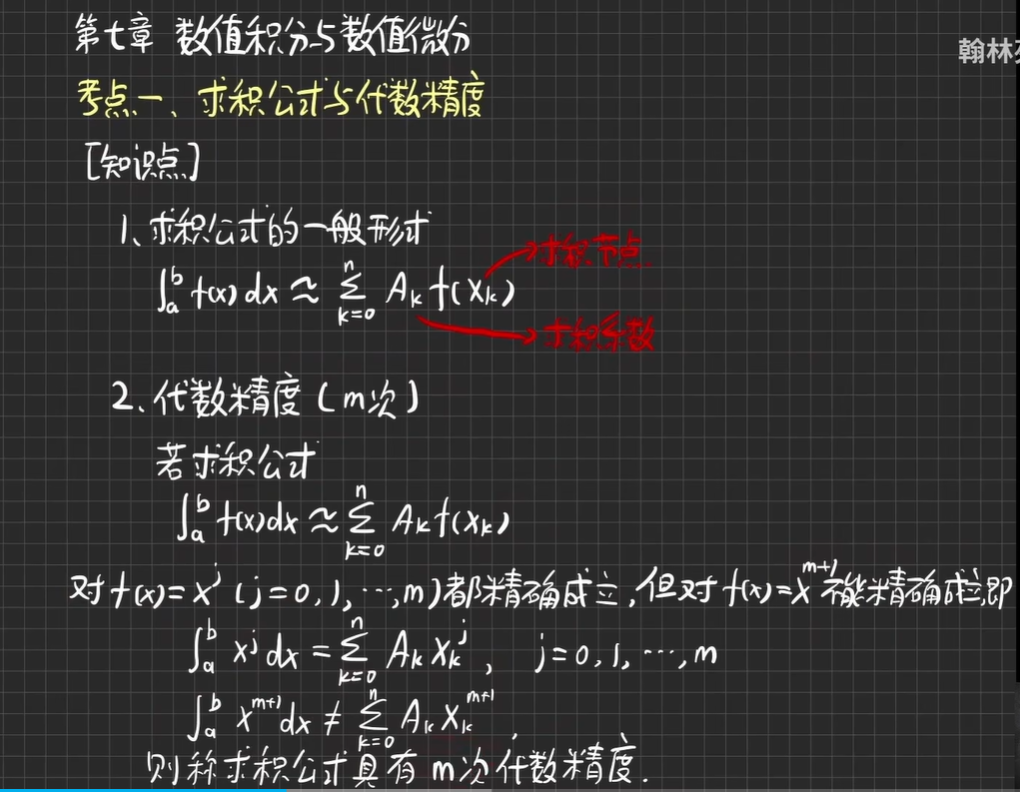 第七章 数值积分与数值微分
翰林
考点一、求积公式与代数精度
[知识点]
1、求积公式的一般形式
求积节点
∫_a^b f(x)dx ≈ Σ_{k=0}^n A_k f(x_k)
求积系数
2、代数精度(m次)
若求积公式
∫_a^b f(x)dx ≈ Σ_{k=0}^n A_k f(x_k)
对f(x)=x^j (j=0,1,…,m)都精确成立,但对f(x)=x^{m+1}不能精确成立,即
∫_a^b x^j dx = Σ_{k=0}^n A_k x_k^j, j=0,1,…,m
∫_a^b x^{m+1} dx ≠ Σ_{k=0}^n A_k x_k^{m+1},
则称求积公式具有m次代数精度.